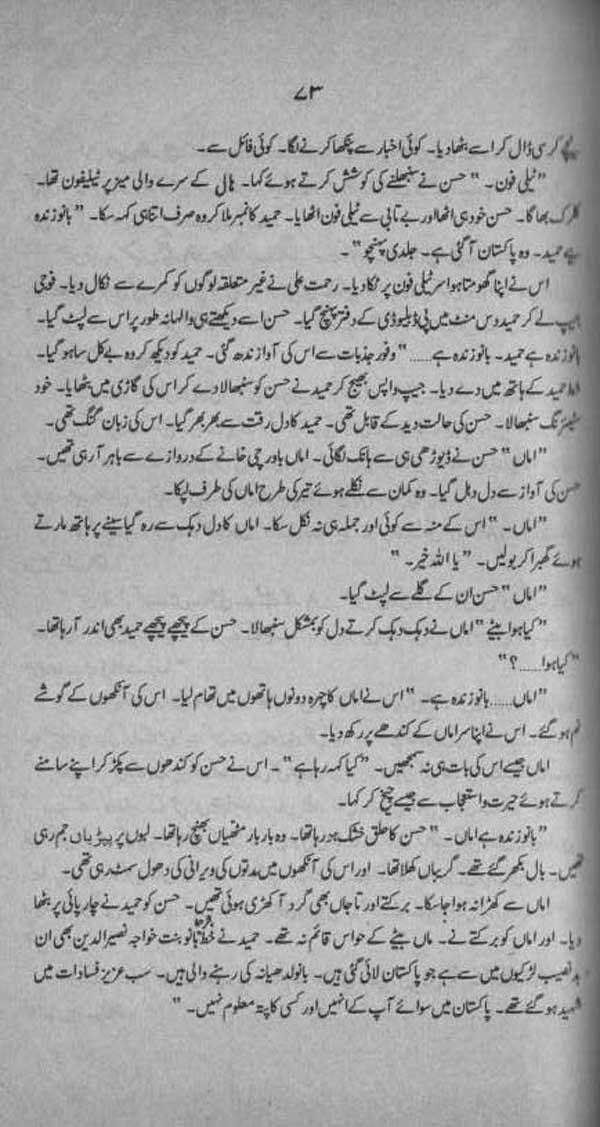 ۷۳
نیچے کرسی ڈال کر اسے بٹھا دیا۔ کوئی اخبار سے پنکھا کرنے لگا۔ کوئی فائل سے۔
”ٹیلی فون۔ “ حسن نے سنبھلنے کی کوشش کرتے ہوئے کہا۔ ہال کے سرے والی میز پر ٹیلیفون تھا۔
کلرک بھاگا۔ حسن خود ہی اٹھا اور بے تابی سے ٹیلی فون اٹھایا۔ حمید کا نمبر ملا کر وہ صرف اتنا ہی کہہ سکا۔ ”بانو زندہ
ہے حمید۔ وہ پاکستان آگئی ہے۔ جلدی پہنچو“۔
اس نے اپنا گھومتا ہوا سر ٹیلی فون پر ٹکا دیا۔ رحمت علی نے غیر متعلقہ لوگوں کو کمرے سے نکال دیا۔ فوجی
جیپ لے کر حمید دس منٹ میں پی ڈبلیو ڈی کے دفتر پہنچ گیا۔ حسن اسے دیکھتے ہی والہانہ طور پر اس سے لپٹ گیا۔
بانو زندہ ہے حمید۔ بانو زندہ ہے......“ وفور جذبات سے اس کی آواز ندھ گئی۔ حمید کو دیکھ کر وہ بے کل سا ہو گیا۔
خط حمید کے ہاتھ میں دے دیا۔ جیپ واپس بھیج کر حمید نے حسن کو سنبھالا دے کر اس کی گاڑی میں بٹھایا۔ خود
سٹیئرنگ سنبھالا۔ حسن کی حالت دید کے قابل تھی۔ حمید کا دل رقت سے بھر بھر گیا۔ اس کی زبان گنگ تھی۔
”اماں“ حسن نے ڈیوڑھی ہی سے ہانک لگائی۔ اماں باورچی خانے کے دروازے سے باہر آ رہی تھیں۔
حسن کی آواز سے دل دہل گیا۔ وہ کمان سے نکلے ہوئے تیر کی طرح اماں کی طرف لپکا۔
”اماں۔ “ اس کے منہ سے کوئی اور جملہ ہی نہ نکل سکا۔ اماں کا دل دہک سے رہ گیا سینے پر ہاتھ مارتے
ہوئے گھبرا کر بولیں۔ ”یا اللہ خیر۔ “
”اماں“ حسن ان کے گلے سے لپٹ گیا۔
”کیا ہوا بیٹے“ اماں نے دہک دہک کرتے دل کو بمشکل سنبھالا۔ حسن کے پیچھے پیچھے حمید بھی اندر آ رہا تھا۔
”کیا ہوا......؟“
”اماں...... بانو زندہ ہے۔ “ اس نے اماں کا چہرہ دونوں ہاتھوں میں تھام لیا۔ اس کی آنکھوں کے گوشے
نم ہو گئے۔ اس نے اپنا سر اماں کے کندھے پر رکھ دیا۔
اماں جیسے اس کی بات ہی نہ سمجھیں۔ ”کیا کہہ رہا ہے“۔ اس نے حسن کو کندھوں سے پکڑ کر اپنے سامنے
کرتے ہوئے حیرت و استعجاب سے جیسے چیخ کر کہا۔
”بانو زندہ ہے اماں۔ “ حسن کا حلق خشک ہو رہا تھا۔ وہ بار بار مٹھیاں بھینچ رہا تھا۔ لبوں پر پپڑیاں جم رہی
تھیں۔ بال بکھر گئے تھے۔ گریباں کھلا تھا۔ اور اس کی آنکھوں میں مدتوں کی ویرانی کی دھول سمٹ رہی تھی۔
اماں سے کھڑا نہ ہوا جا سکا۔ برکتے اور تاجاں بھی گرد آ کھڑی ہوئی تھیں۔ حسن کو حمید نے چارپائی پر بٹھا
دیا۔ اور اماں کو برکتے نے۔ ماں بیٹے کے حواس قائم نہ تھے۔ حمید نے خط پڑھا بانو بنت خواجہ نصیر الدین بھی ان
بد نصیب لڑکیوں میں سے ہے جو پاکستان لائی گئی ہیں۔ بانو لدھیانہ کی رہنے والی ہیں۔ سب عزیز فسادات میں
شہید ہو گئے تھے۔ پاکستان میں سوائے آپ کے انہیں اور کسی کا پتہ معلوم نہیں۔ “